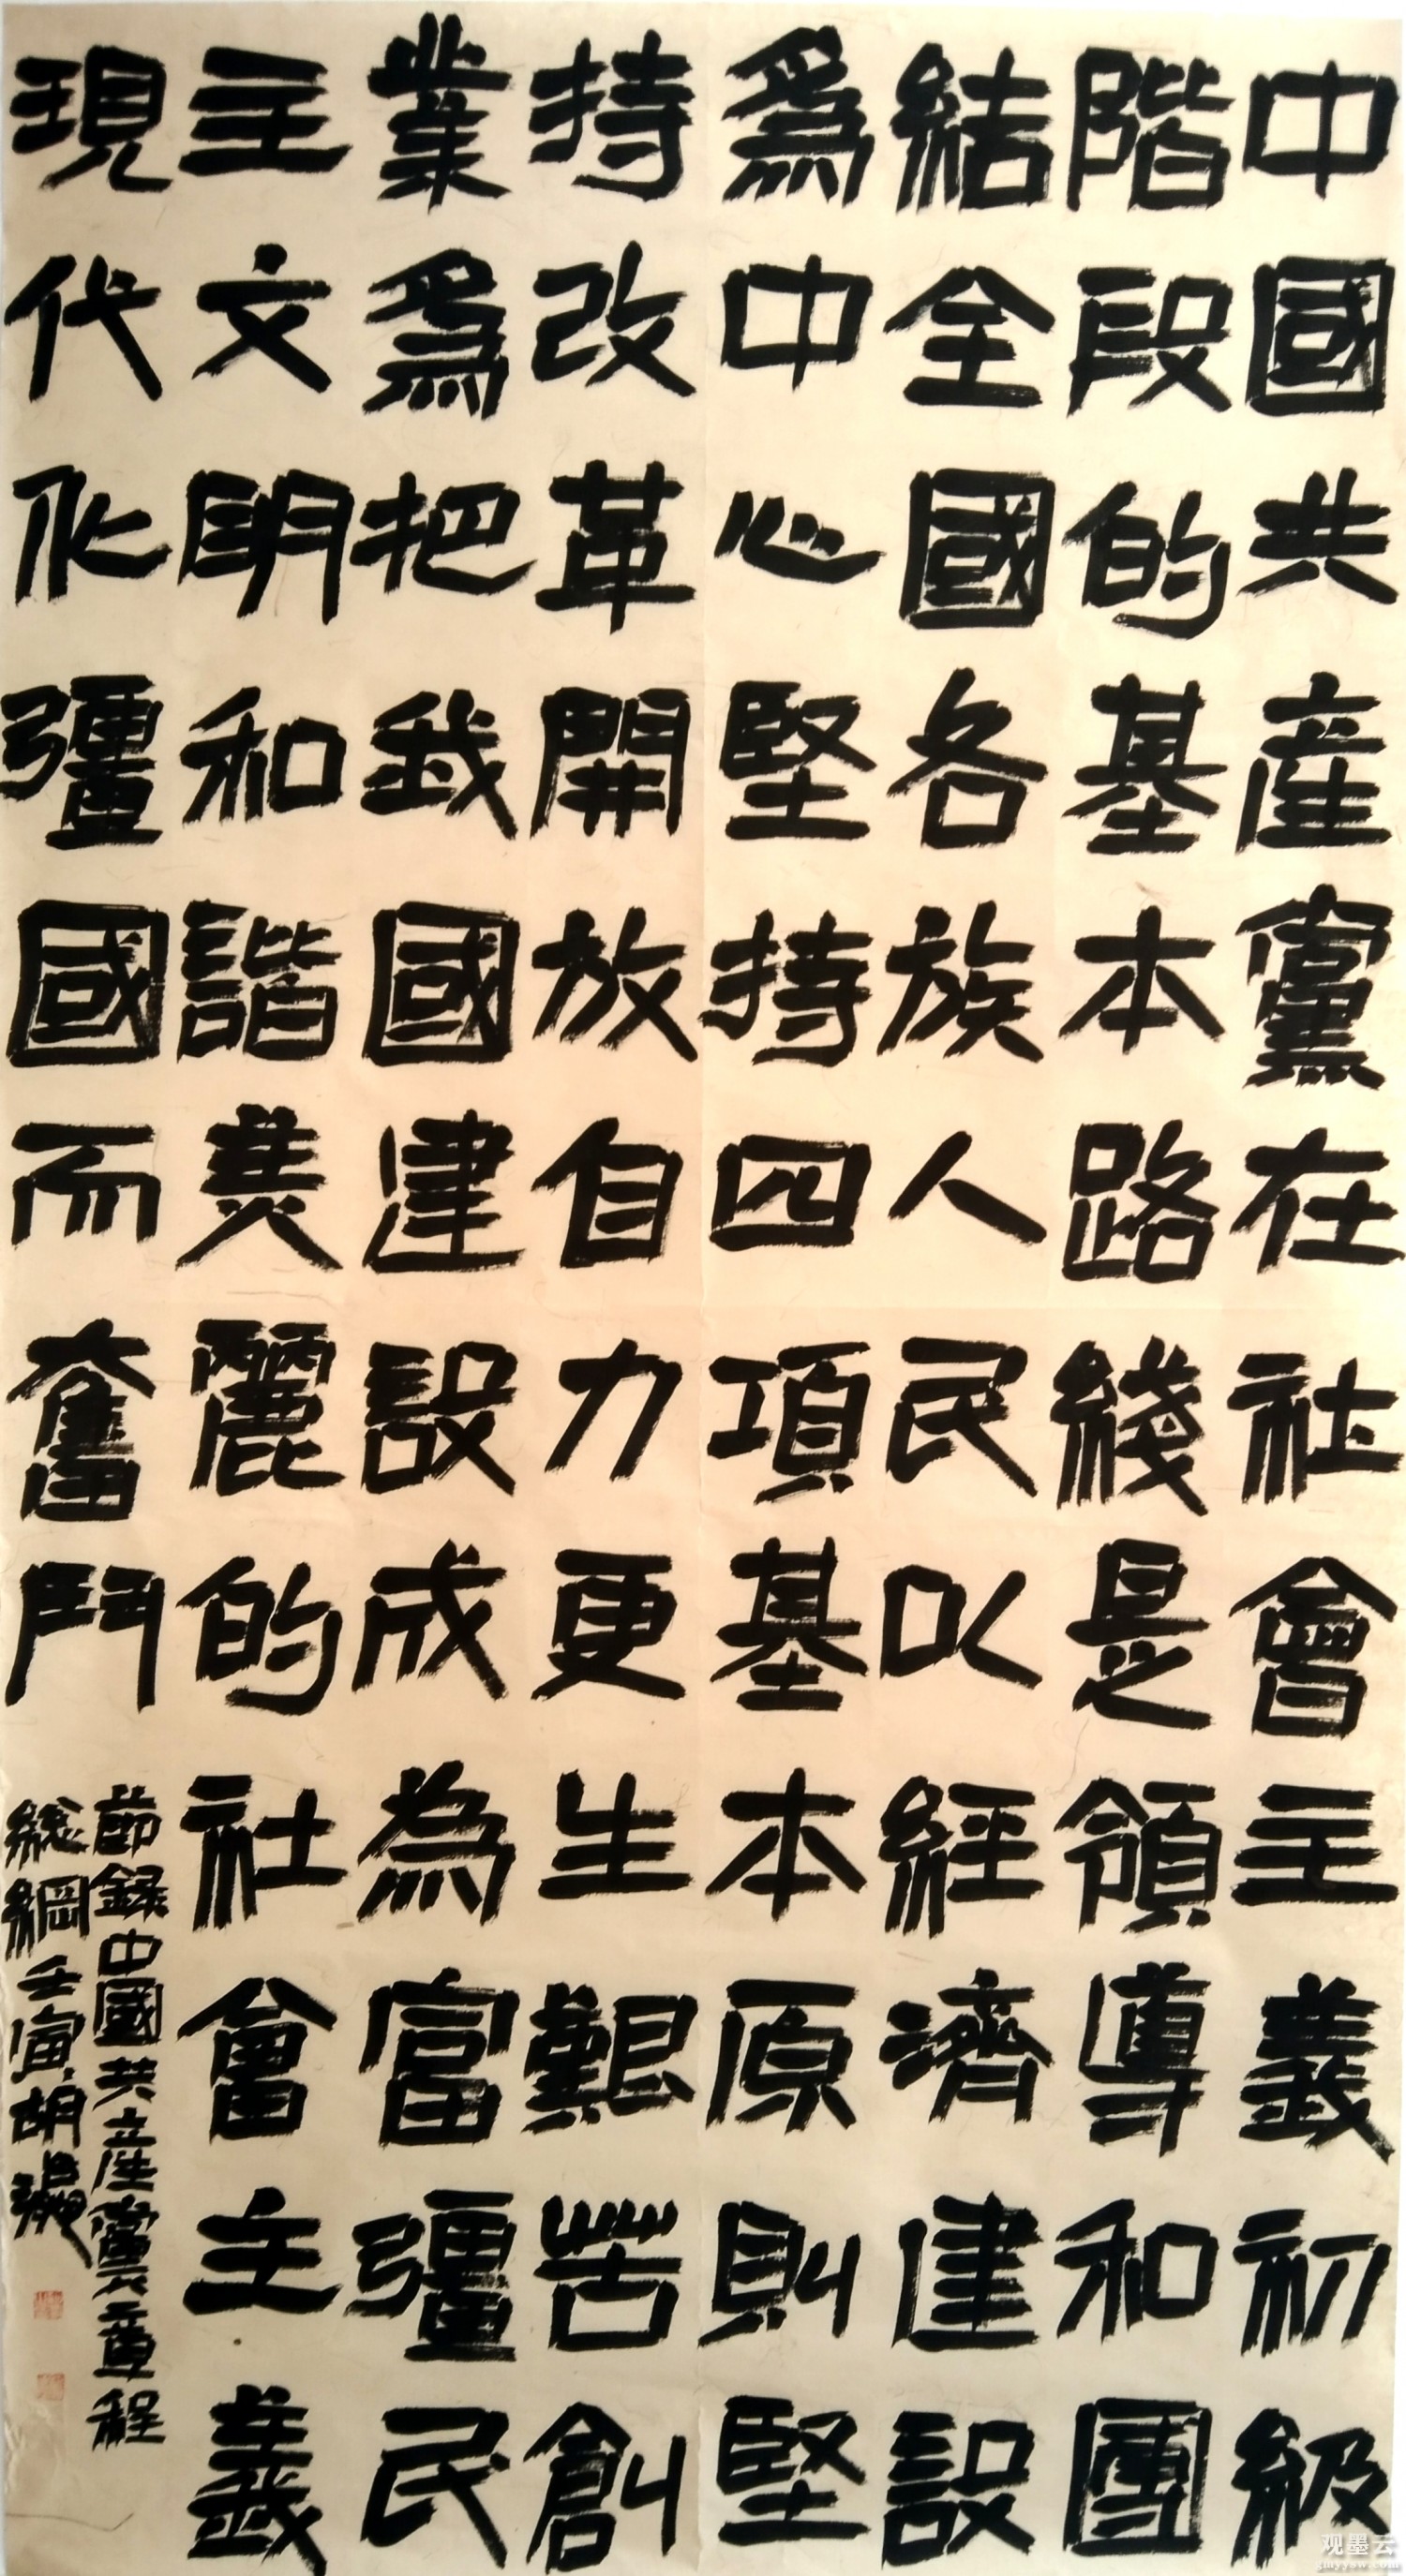 中國共產黨在社會主義初級
階段的基本路綫是領導和團
結全國各族人民以經濟建設
爲中心堅持四項基本原則堅
持改革開放自力更生艱苦創
業爲把我國建設成為富彊民
主文明和諧美麗的社會主義
現代化彊國而奮鬥
節錄中國共產黨章程
總綱壬寅胡
观墨云
gmyysw.com